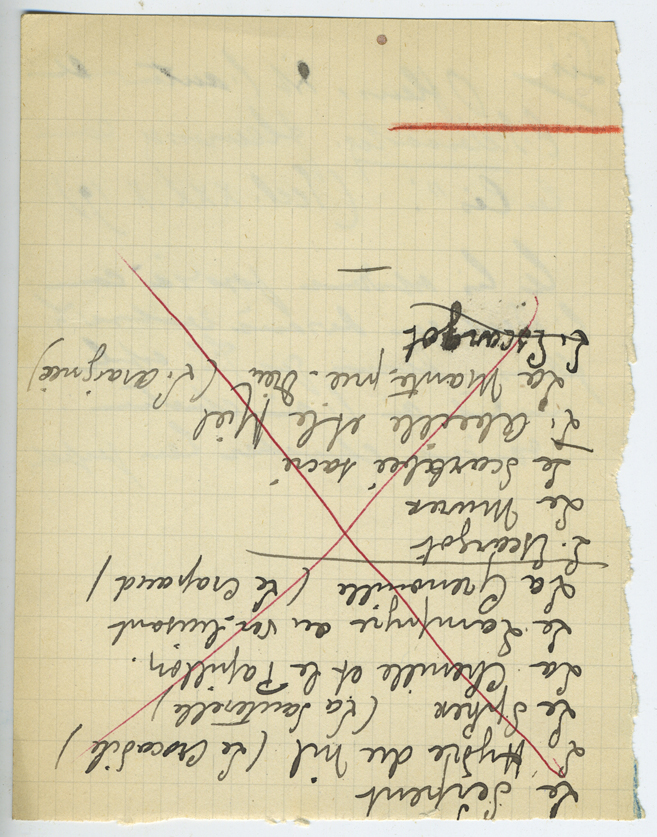 Le Serpent
L'Hydre du Nil (Le Crocodile)
Le Sphex (La Sauterelle)
La Chenille et le Papillon.
Le Lampyre ou ver luisant
La Grenouille (Le Crapaud)
L'Escargot
Le Murex
Le Scarabée sacré
L'Abeille et le Miel
La Mante, prie-Dieu (L'Araignée)
L'Escargot